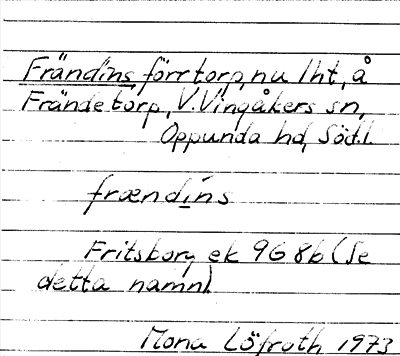 Frändins, förr torp, nu lht, å
Frändetorp, V. Vingåkers sn,
Oppunda hd, Söd.l.
frændíns
Fritskorg ek 9G 8b (Se
detta namn).
Mona Löfroth 1973